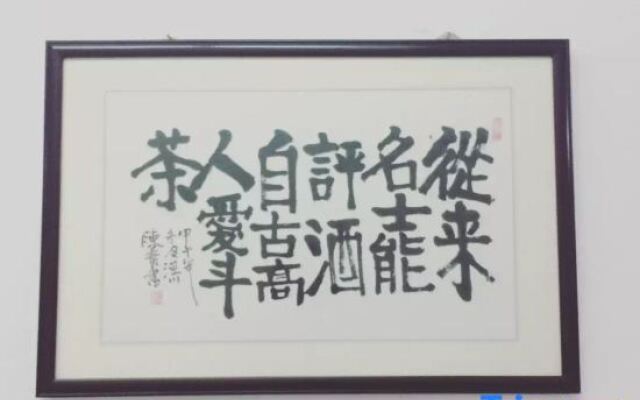 從来
名士能
評酒
自古高
人愛斗
茶
甲午年